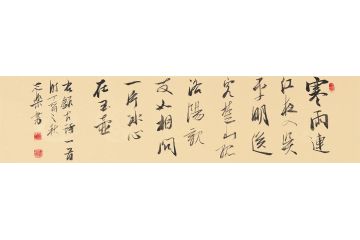 寒雨連
江夜入吳
平明送
客楚山孤
洛陽親
友如相問
一片冰心
在玉壺
錄古詩一首
之秋
書